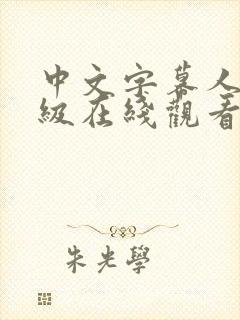 中文字幕人
级在线观看
朱光學